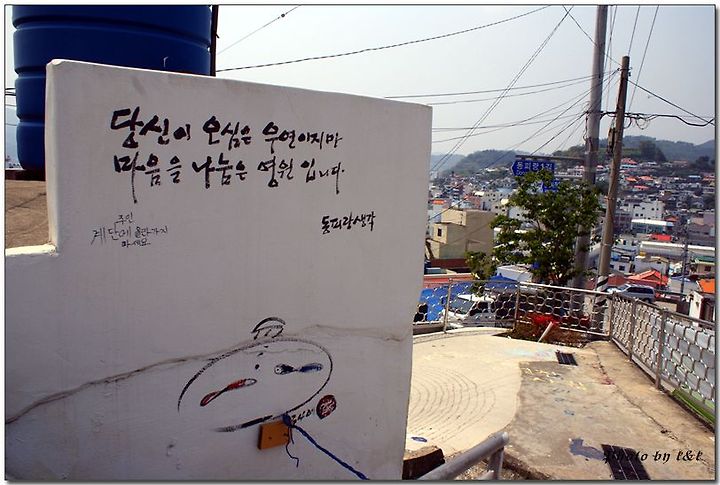 당신이 오심은 우연이지만
마음을 나눔은 영원 입니다.
동피랑생각
주인
계단에 올라가지
마세요
동피랑1길
Photo by l&l